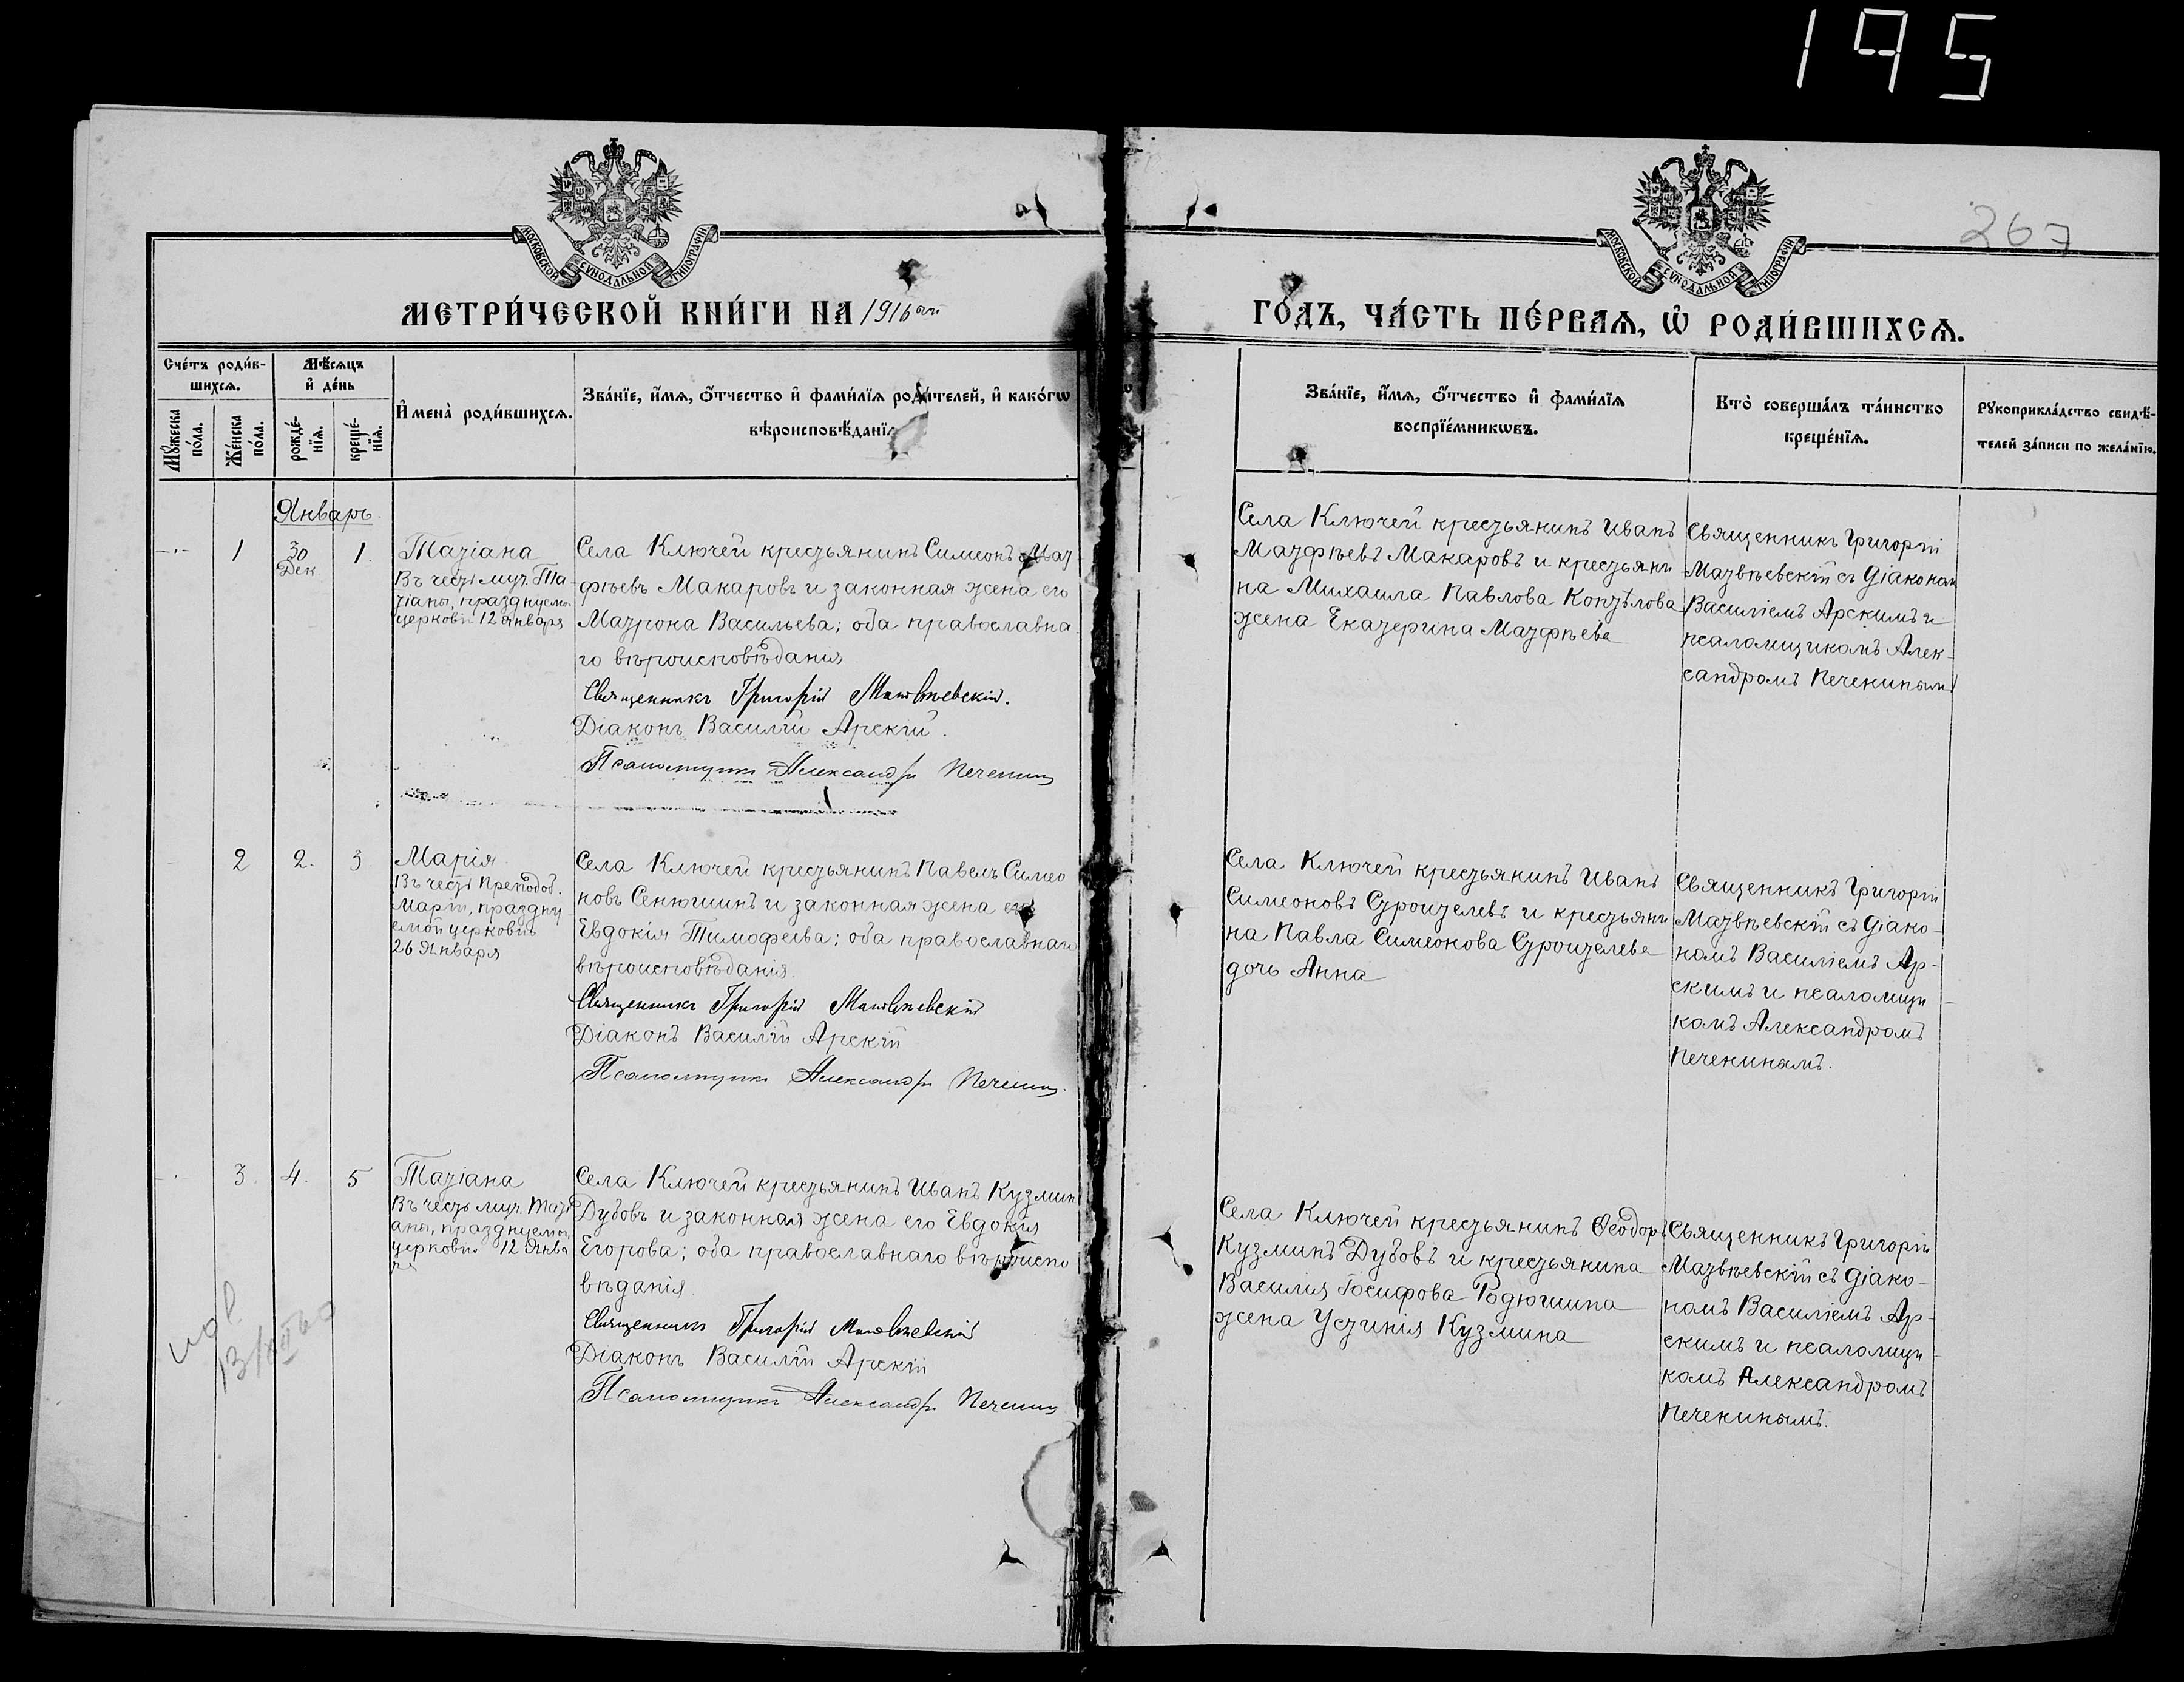 195
267
МОСКОВСКОЙ СУНОДАЛЬНОЙ ТИПОГРАФІИ
МОСКОВСКОЙ СУНОДАЛЬНОЙ ТИПОГРАФІИ
МЕТРИ́ЧЕСКОЙ КНИ́ГИ НА 1916 ый
ГО́ДЪ, ЧА́СТЬ ПЕ́РВАЯ, Ѡ҆ РОДИ́ВШИХСѦ.
Сче́тъ роди́в-
шихсѧ.
Мꙋ́жеска по́ла.
Же́нска по́ла.
Мѣ́сѧцъ
и҆ де́нь
рожде́-нїѧ.
креще́-нїѧ.
И҆мена̀ роди́вшихсѧ.
Зва́нїе, и҆́мѧ, ѻ҆́тчество и҆ фами́лїѧ роди́телей, и҆ како́гѡ
вѣроисповѣ́данїѧ
Зва́нїе, и҆́мѧ, ѻ҆́тчество и҆ фами́лїѧ
воспрїе́мникѡвъ.
Кто̀ соверша́лъ та́инство
креще́нїѧ.
Рꙋкоприкла́дство свидѣ́-
телей за́писи по жела́нїю.
Январь.
1
30
Дек.
1.
Татіана
Въ честь муч. Та-
тіаны, празднуемо
церковію 12 Января
Села Ключей крестьянинъ Симеонъ Мат
фѣевъ Макаровъ и законная жена его
Матрона Васильева; оба православна
го вѣроисповѣданія
Священникъ Григорій Матвѣевскій.
Діаконъ Василій Арскій.
Псаломщикъ Александръ Печенинъ
Села Ключей крестьянинъ Иванъ
Матфѣевъ Макаровъ и крестьяни
на Михаила Павлова Копылова
жена Екатерина Матфѣева
Священникъ Григорій
Матвѣевскій съ діаконом
Василіемъ Арскимъ и
псаломщикомъ Алек-
сандромъ Печенинымъ
2
2.
3
Марія
Въ честь Преподоб.
Маріи, праздну
емой церковію
26 Января
Села Ключей крестьянинъ Павелъ Симео
новъ Сенюшинъ и законная жена его
Евдокія Тимофеева; оба православнаго
вѣроисповѣданія.
Священникъ Григорій Матвѣевскій
Діаконъ Василій Арскій
Псаломщикъ Александръ Печенинъ.
Села Ключей крестьянинъ Иванъ
Симеоновъ Строителевъ и крестьяни
на Павла Симеонова Строителева
дочь Анна
Священникъ Григорій
Матвѣевскій съ діако-
номъ Василіемъ Ар-
скимъ и псаломщи
комъ Александромъ
Печенинымъ.
3.
4.
5
Татіана
Въ честь муч. Тати
аны, празднуемой
церковію 12 Янва
ря
Села Ключей крестьянинъ Иванъ Кузмин
Дубовъ и законная жена его Евдокія
Егорова; оба православнаго вѣроиспо
вѣданія.
Священникъ Григорій Матвѣевскій
Діаконъ Василій Арскій
Псаломщикъ Александръ Печенинъ
Села Ключей крестьянинъ Ѳеодоръ
Кузминъ Дубовъ и крестьянина
Василія Іосифова Родюшина
жена Устинія Кузмина
Священникъ Григорій
Матвѣевскій съ діако-
номъ Василіемъ Ар-
скимъ и псаломщи
комъ Александромъ
Печенинымъ.